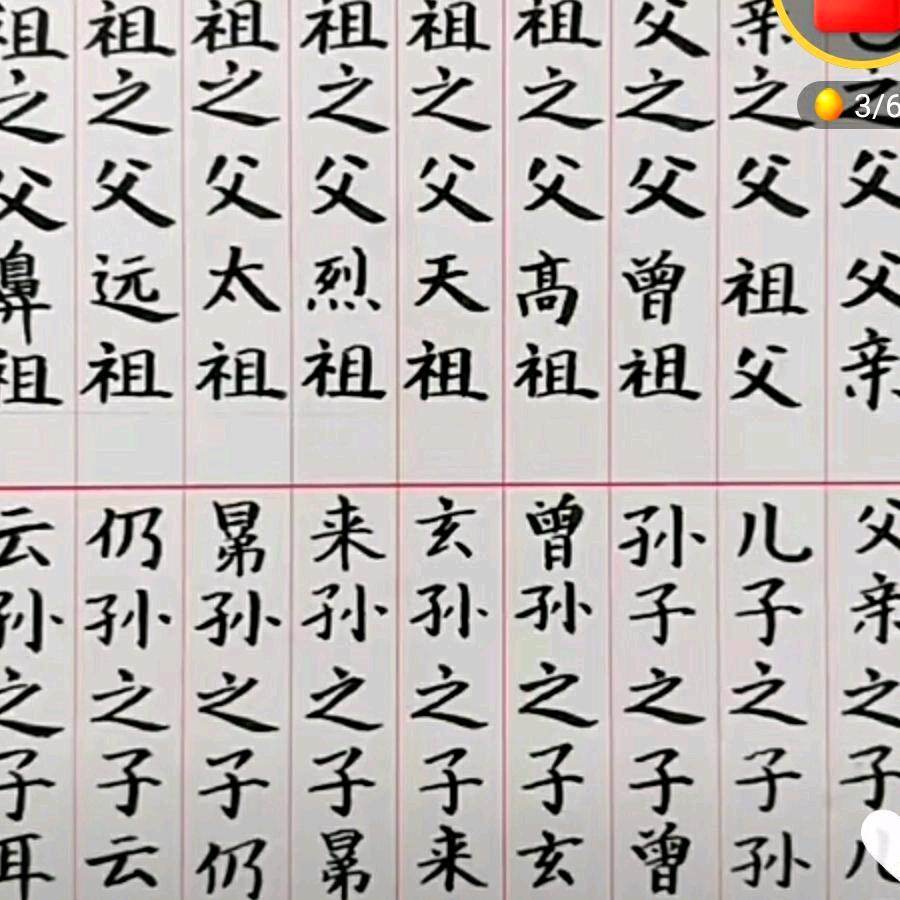 之父父亲
亲之父祖父
父之父曾祖
祖之父高祖
祖之父天祖
祖之父烈祖
祖之父太祖
祖之父远祖
祖之父鼻祖
父亲之子儿
儿子之子孙
孙子之子曾
曾孙之子玄
玄孙之子来
来孙之子晜
晜孙之子仍
仍孙之子云
云孙之子耳
3/6